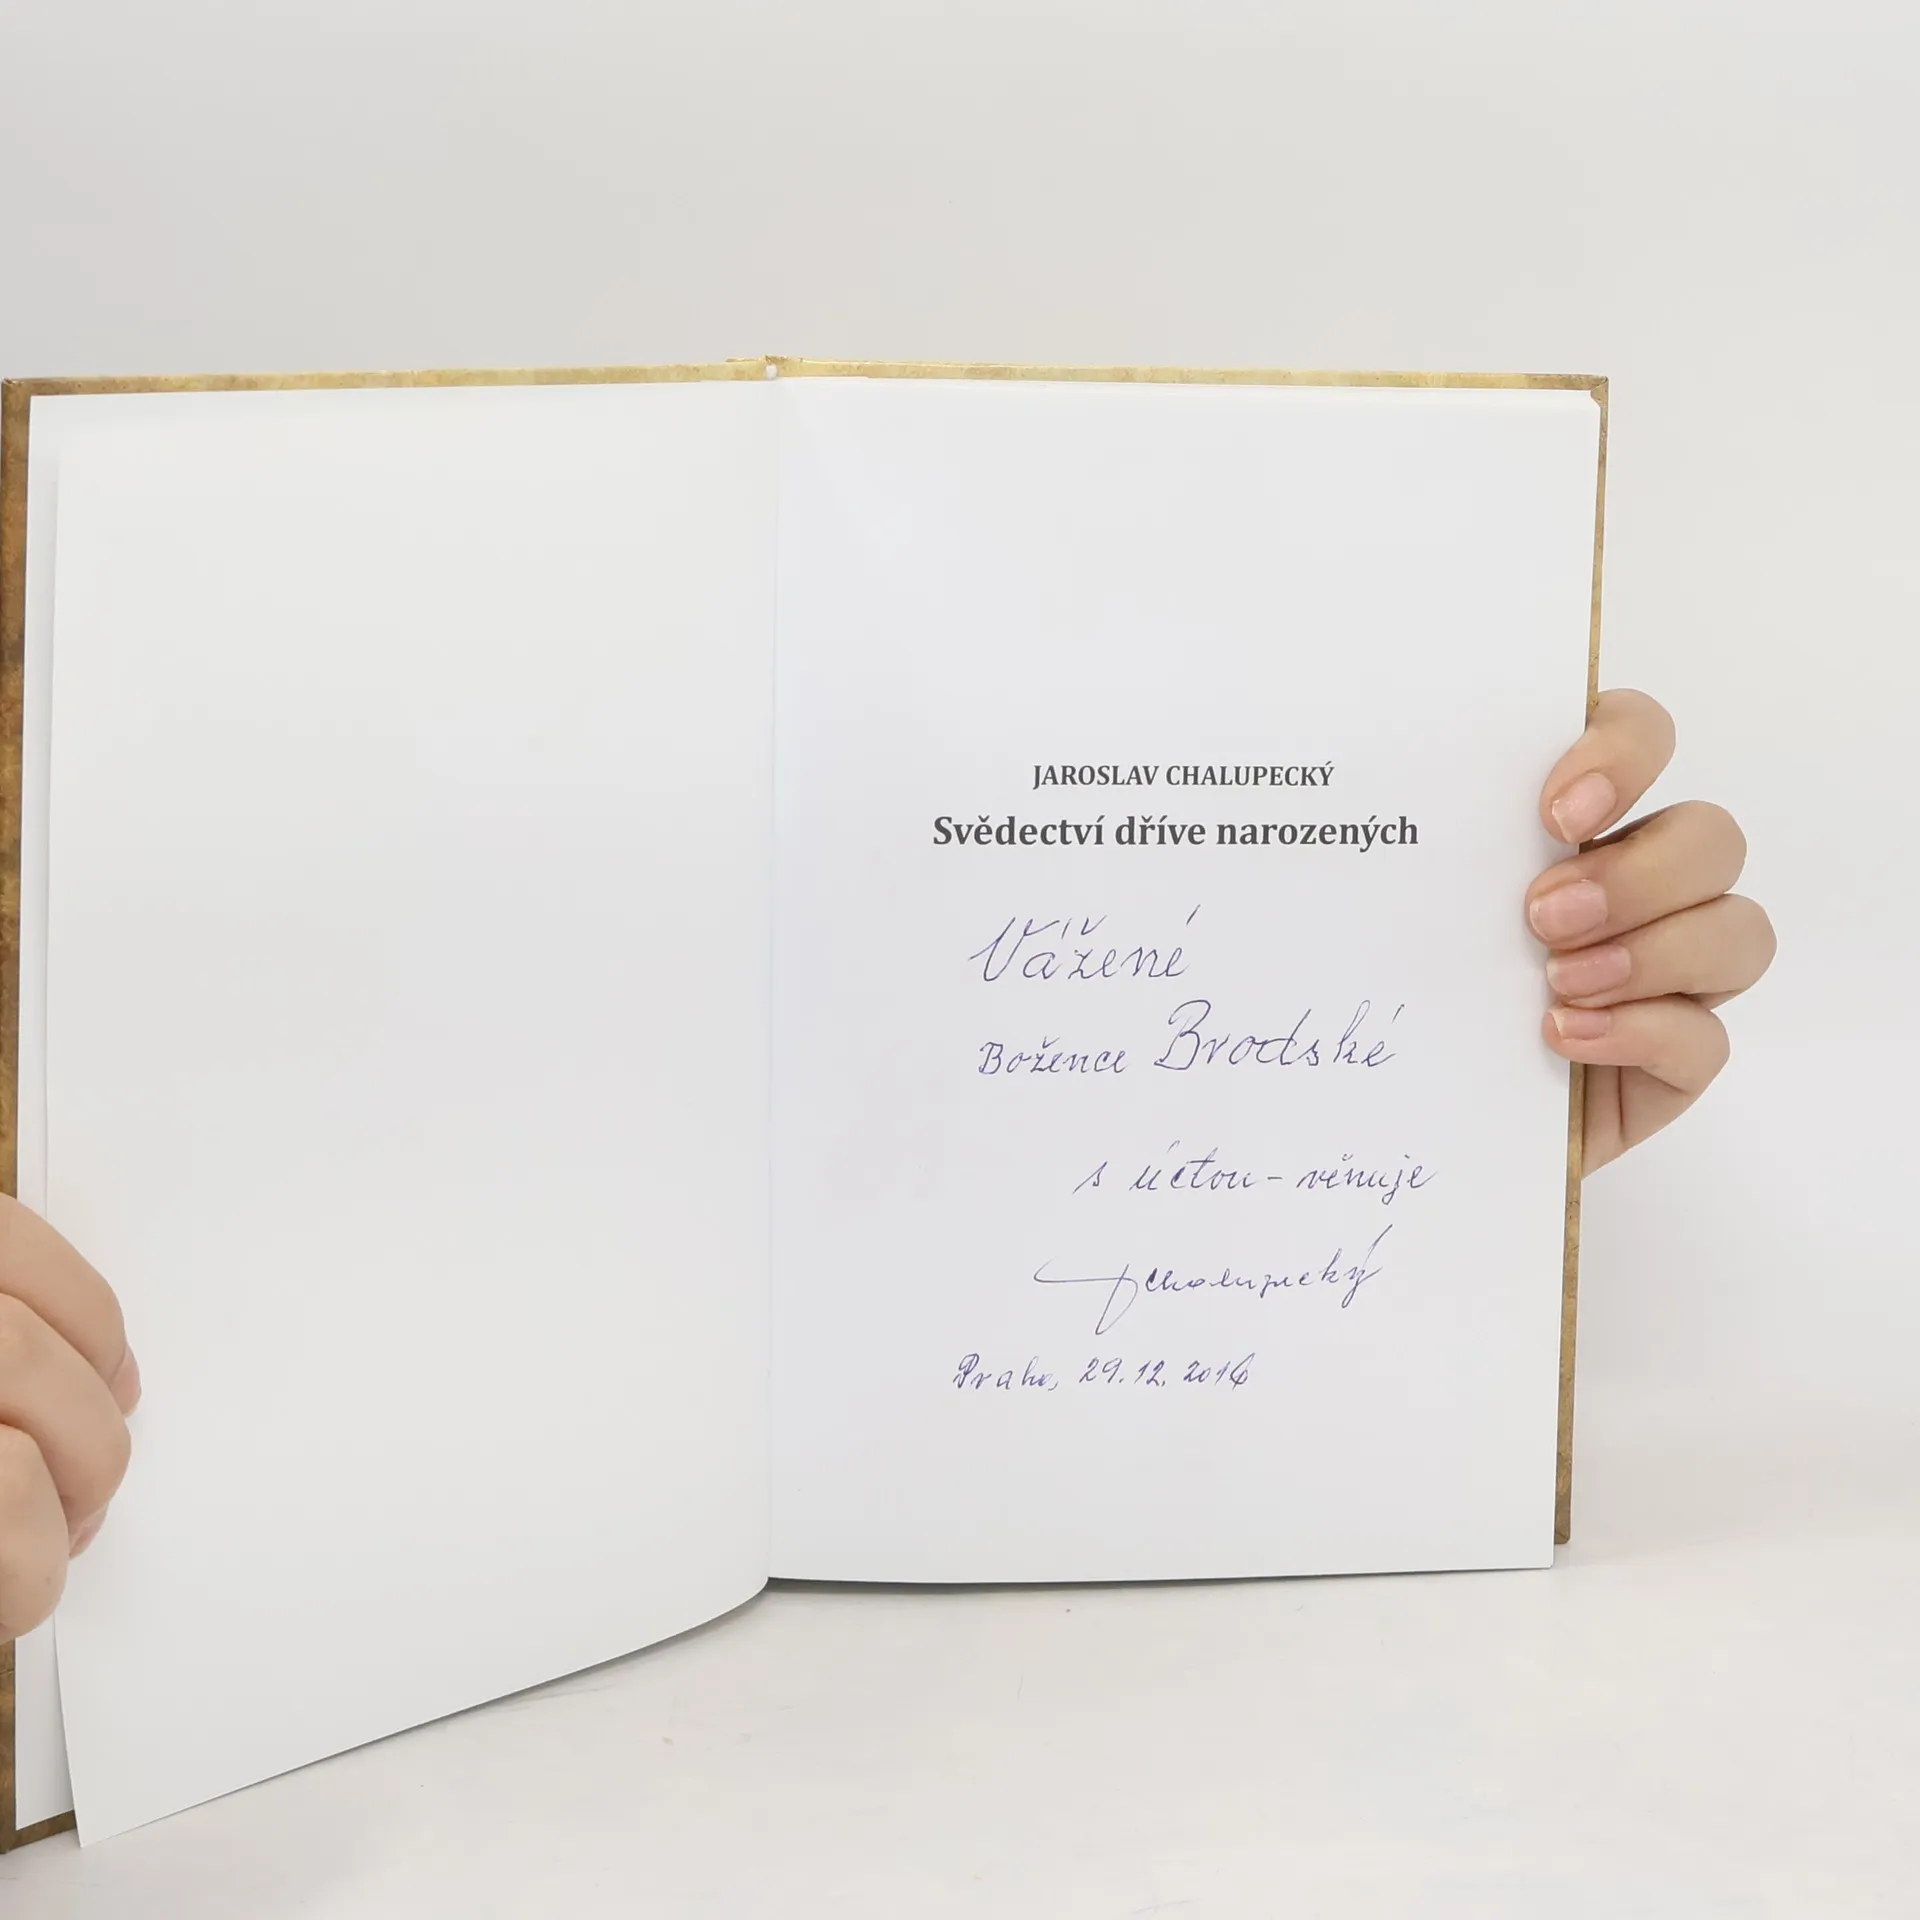 JAROSLAV CHALUPECKÝ
Svědectví dříve narozených
Vážené
Božence Brodské
s úctou - věnuje
JChalupecký
Praha, 29.12.2016